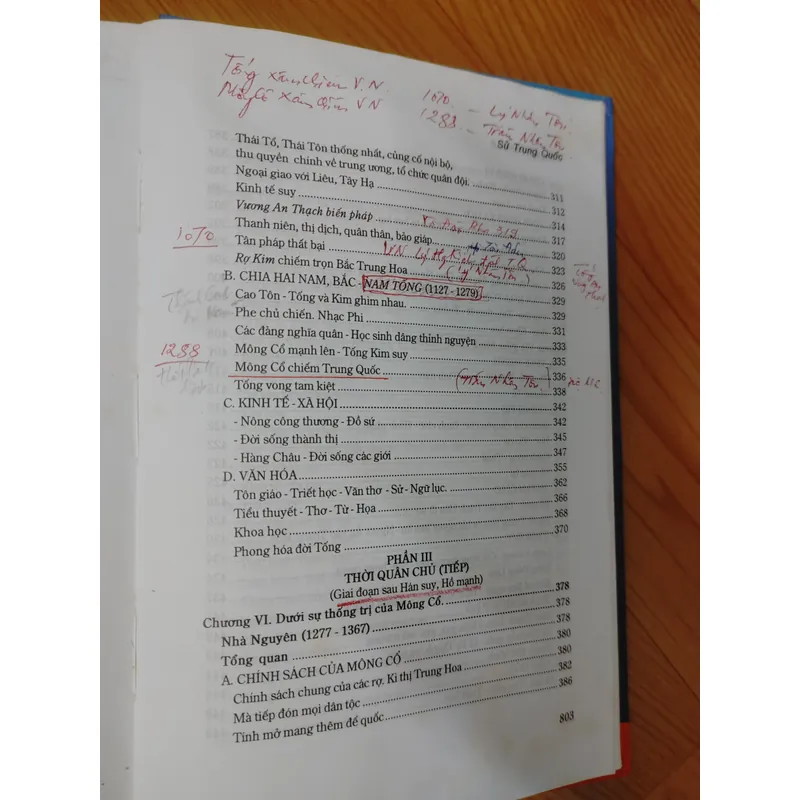 Tống xâm chiếm V.N. 1070. - Lý Nhân Tôn
Mông Cổ xâm chiếm VN 1288. - Trần Nhân Tôn
Sử Trung Quốc
Thái Tổ, Thái Tôn thống nhất, củng cố nội bộ,
thu quyền chính về trung ương, tổ chức quân đội. 311
Ngoại giao với Liêu, Tây Hạ 312
Kinh tế suy 314
Vương An Thạch biến pháp 317
Thanh niên, thị dịch, quân thân, bảo giáp 320
1070
Tân pháp thất bại 323
V.N. Lý Thg Kiệt
Rợ Kim chiếm trọn Bắc Trung Hoa 326
B. CHIA HAI NAM, BẮC - NAM TỐNG (1127 - 1279) 329
Cao Tôn - Tống và Kim ghìm nhau. 329
Phe chủ chiến. Nhạc Phi 331
Các đảng nghĩa quân - Học sinh dâng thỉnh nguyện 333
Mông Cổ mạnh lên - Tống Kim suy 335
1288
Mông Cổ chiếm Trung Quốc 336
(Trần Nhân Tôn)
Tống vong tam kiệt 338
C. KINH TẾ - XÃ HỘI 342
- Nông công thương - Đồ sứ 342
- Đời sống thành thị 345
- Hàng Châu - Đời sống các giới 347
D. VĂN HÓA 355
Tôn giáo - Triết học - Văn thơ - Sử - Ngữ lục. 362
Tiểu thuyết - Thơ - Từ - Họa 366
Khoa học 368
Phong hóa đời Tống 370
PHẦN III
THỜI QUÂN CHỦ (TIẾP)
(Giai đoạn sau Hán suy, Hồ mạnh)
Chương VI. Dưới sự thống trị của Mông Cổ. 378
Nhà Nguyên (1277 - 1367) 378
Tổng quan 378
A. CHÍNH SÁCH CỦA MÔNG CỔ 380
Chính sách chung của các rợ. Kì thị Trung Hoa 380
Mà tiếp đón mọi dân tộc 382
Tính mở mang thêm đế quốc 386
803